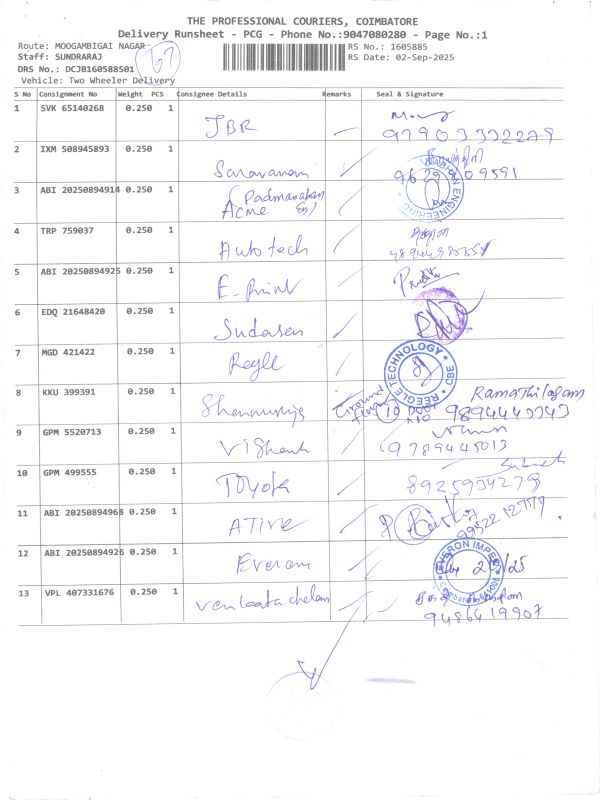 THE PROFESSIONAL COURIERS, COIMBATORE
Delivery Runsheet - PCG - Phone No.:9047080280 - Page No.:1
Route: MOOGAMBIGAI NAGAR
RS No.: 1605885
Staff: SUNDRARAJ
RS Date: 02-Sep-2025
DRS No.: DCJB160588501
67
Vehicle: Two Wheeler Delivery
S No Consignment No Weight PCS Consignee Details Remarks Seal & Signature
1 SVK 65140268 0.250 1 JBR
2 IXM 508945893 0.250 1 Saravanan
3 ABI 20250894914 0.250 1 Padmanaban
Acme
4 TRP 759037 0.250 1 Autotech
5 ABI 20250894925 0.250 1 E. Print
6 EDQ 21648420 0.250 1 Sudasan
7 MGD 421422 0.250 1 Reegle REEGLE TECHNOLOGY CBE
8 KKU 399391 0.250 1 Ground Ramathilagam
9894443743
9 GPM 5520713 0.250 1 9789445013
10 GPM 499555 0.250 1 TOyota 8925934279
11 ABI 20250894968 0.250 1 ATive
12 ABI 20250894926 0.250 1 Everon EVERON IMPEX
Coimbatore
13 VPL 407331676 0.250 1 Venkatachalam
9486419907